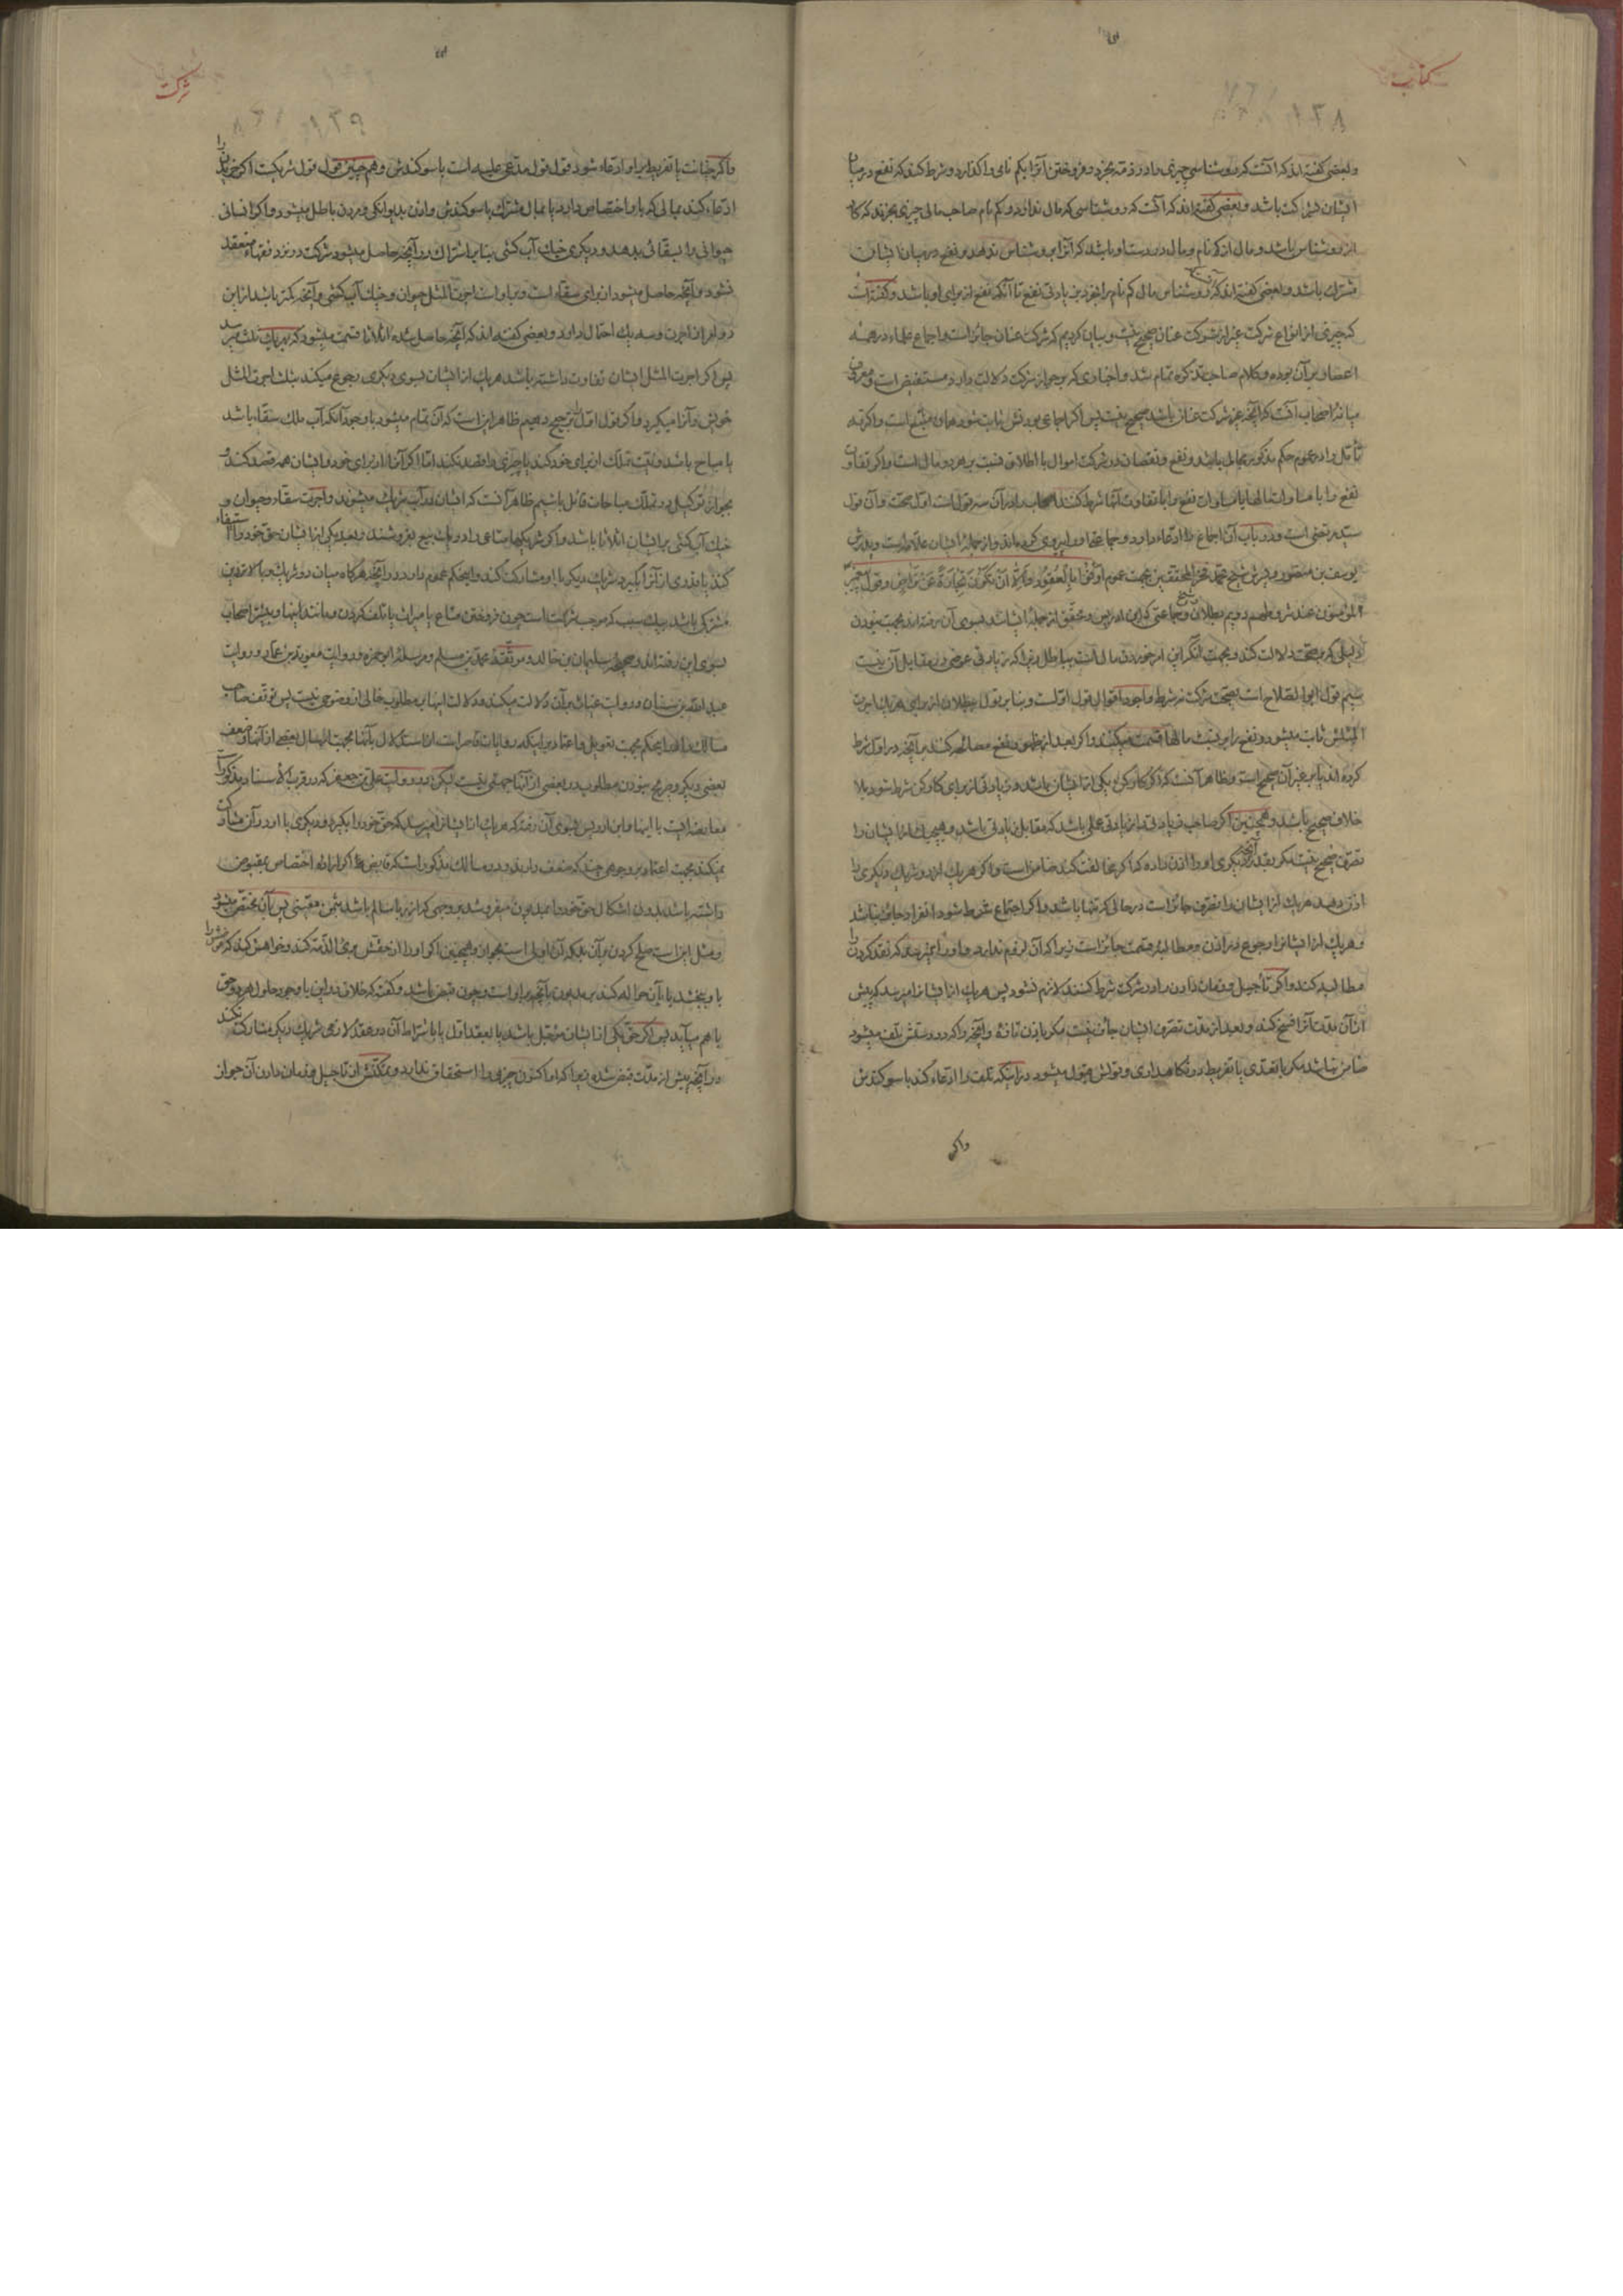 کتاب
۱۳۸
و بعضی گفته اند که آنست که روشناسی چیزی را در ذمه بخرد و فروختن آنرا بکم نامی واگذارد و شرط کند که نفع در میان
ایشان شراکت باشد و بعضی گفته اند که آنست که روشناسی که مال ندارد و کم نام صاحب مالی چیزی بخرند که کار
از روشناس باشد و مال از کم نام و مال در دست او باشد که آنرا بروشناس ندهد و نفع در میان ایشان
مشترک باشد و بعضی گفته اند که روشناس مال کم نام را بفروشد بزیادتی نفع تا آنکه نفع از برای او باشد و گفته است
که چیزی از انواع شرکت غیر از شرکت عنان صحیح نیست و بیان کردیم که شرکت عنان جائز است و اجماع علماء در همه
اعصار بر آن بوده و کلام صاحب تذکره تمام شد و اخباری که بر جواز شرکت دلالت دارد مستفیض است و معروف
میانهٔ اصحاب آنست که آنچه غیر شرکت عنان باشد صحیح نیست پس اگر اجماعی بودنش ثابت شود همان متبع است واگر نه
تأمل را در عموم حکم مذکور مجالی باشد و نفع و نقصان در شرکت اموال با اطلاق نسبت بهر دو مال است و اگر تفاوت
نفع را با مساوات مالها یا مساوات نفع را با تفاوت آنها شرط کنند اصحاب را در آن سه قول است اول صحت و آن قول
سید مرتضی است و در باب آن اجماع را ادعاء دارد و جماعتی او را پیروی کرده اند و از جمله ایشان علامه است و پدرش
یوسف بن مطهر و پسرش شیخ محمد فخر المحققین بجهت عموم أَوْفُوا بِالْعُقُودِ و إِلَّا أَنْ تَكُونَ تِجَارَةً عَنْ تَرَاضٍ و قول پیغمبر
المؤمنون عند شروطهم دویم بطلان و جماعتی که ابن ادریس و محقق از جملهٔ ایشانند بسوی آن رفته اند بجهت نبودن
دلیلی که بر صحت دلالت کند و بجهت آنکه این امر خوردن مال است بباطل زیرا که زیادتی عوضی در مقابل آن نیست
سیم قول ابو الصلاح است بصحت شرکت نه شرط و اجود اقوال قول اولست و بنا بر قول ببطلان از برای هر یک اجرت
المثلش ثابت میشود و نفع را بر نسبت مالها قسمت میکنند و اگر بعد از ظهور نفع مصالحه کنند بر آنچه در اول شرط
کرده اند یا بر غیر آن صحیح است و ظاهر آنست که اگر کارکن یکی از ایشان باشد و زیادتی از برای کارکن شرط شود بلا
خلاف صحیح باشد و همچنین اگر صاحب زیادتی را زیادتی عملی باشد که مقابل زیادتی باشد و هیچیک از ایشان را
تصرف صحیح نیست مگر بقدر آنچه دیگری او را اذن داده که اگر مخالفت کند ضامن است و اگر هر یک از دو شریک دیگری را
اذن دهد هر یک از ایشان را تصرف جائز است در حالی که تنها باشد و اگر اجتماع شرط شود انفراد جائز نباشد
و هر یک از ایشانرا رجوع در اذن و مطالبهٔ قسمت جائز است زیرا که آن لزوم ندارد و او را نمیرسد که نقد کردن را
مطالبه کند و اگر تأجیل و زمان دادن را در شرکت شرط کنند لازم نشود پس هر یک از ایشانرا میرسد که پیش
از آن مدت آنرا فسخ کند و بعد از مدت تصرف ایشان جائز نیست مگر باذن تازهٔ و آنچه را که در دستش تلف میشود
ضامن نباشد مگر با تعدی یا تفریط در نگاهداری و قولش قبول میشود در اینکه تلف را ادعاء کند با سوگندش
واگر
شرکت
۱۳۹
واگر خیانت یا تفریط بر او ادعاء شود قول قول مدعی علیه است با سوگندش و همچنین قول قول شریکست اگر خریدن را
ادعاء کند بمالی که باو اختصاص دارد یا بمال مشترک با سوگندش و اذن بدیوانگی و مردن باطل میشود و اگر انسانی
حیوانی را بسقائی بدهد و دیگری خیک آب کشی بنا بر اشتراک در آنچه حاصل میشود شرکت در نزد فقهاء منعقد
نشود و آنچه حاصل میشود از برای سقاء است و بر او است اجرت المثل حیوان و خیک آب کشی و آنچه کمتر باشد از این
دو امر از اجرت و سه یک احتمال دارد و بعضی گفته اند که آنچه حاصل شده اثلاثا قسمت میشود که بهر یک ثلث میرسد
پس اگر اجرت المثل ایشان تفاوت داشته باشد هر یک از ایشان بسوی دیگری رجوع میکند بثلث اجرت المثل
خویش و آنرا میگیرد و اگر قول اول را ترجیح دهیم ظاهر این است که آن تمام میشود با وجود آنکه آب ملک سقاء باشد
یا مباح باشد و نیت تملک از برای خود کند یا چیزی را قصد نکند اما اگر آنرا از برای خود و ایشان همه قصد کند و
بجواز توکیل در تملک مباحات قائل باشیم ظاهر آنست که ایشان در آب شریک میشوند و اجرت سقاء و حیوان و
خیک آب کشی بر ایشان اثلاثا باشد و اگر شریکها متاعی را در یک بیع بفروشند و بعد یکی از ایشان حق خود را استیفاء
کند یا قدری از آنرا بگیرد شریک دیگر با او مشارکت کند و این حکم عموم دارد در آنچه هر گاه میان دو شریک
مشترکی باشد بیک سبب که موجب شرکت است چون فروختن متاع یا میراث یا تلف کردن و مانند اینها و بیشتر اصحاب
بسوی این رفته اند و صحیحهٔ سلیمان بن خالد و موثقهٔ محمد بن مسلم و مرسلهٔ ابو حمزه و روایت معویة بن عمار و روایت
عبد الله بن سنان و روایت غیاث بر آن دلالت میکند و دلالت اینها بر مطلوب خالی از وضوحی نیست پس توقف صاحب
مسالک در این حکم بجهت تعویل و اعتماد بر اینکه روایات قاصر است از استدلال بآنها بجهت ارسال بعضی از آنها و ضعف
بعضی دیگر و صریح نبودن مطلوب در بعضی از آنها جهتی نیست لیکن در روایت علی بن جعفر که در قرب الاسناد مذکور است
معارضه ایست با اینها و ابن ادریس بسوی آن رفته که هر یک از ایشانرا میرسد که حق خود را بگیرد و دیگری با او در آن مشارکت
نمیکند بجهت اعتماد بر وجوهی چند که ضعف دارند و در مسالک مذکور است که قابض هر گاه اراده اختصاص بمقبوض
داشته باشد بدون اشکال حق خود را بمدیون میفروشد بر وجهی که از ربا سالم باشد بثمن معینی پس بآن مختص میشود
و مثل این است صلح کردن بر آن بلکه آن اولی است بجواز و همچنین اگر او را از حقش بریء الذمه کند و خواهش کند که عوضش را
باو ببخشد یا بآن حواله کند بر مدیون بآنچه بر او است و چون قبض باشد و گفته که خلاف در این با وجود حلول هر دو حق
با هم میآید پس اگر حق یکی از ایشان مؤجل باشد یا بعقد اول یا باشتراط آن در عقد لازمی شریک دیگر مشارکت نکند
در آنچه پیش از مدت قبض شده زیرا که او اکنون چیزی را استحقاق ندارد و تمکنش از تأجیل و زمان دادن آن جواز